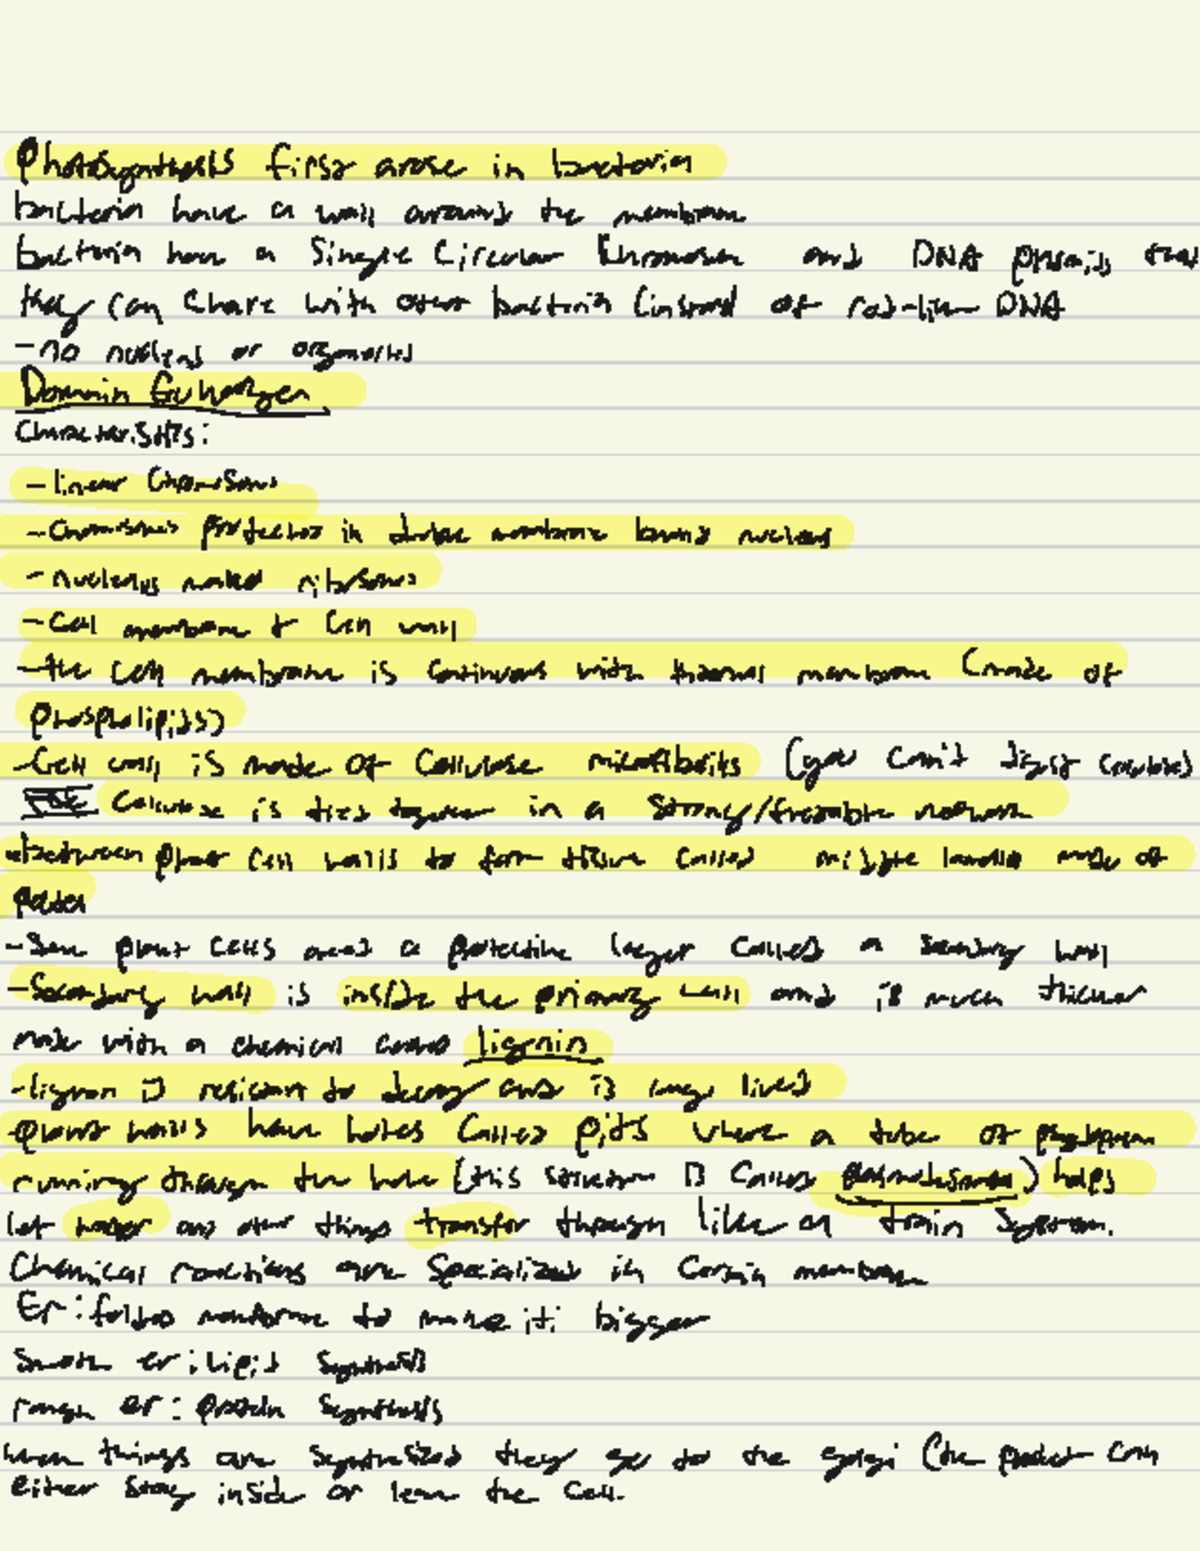 Photosynthesis first arose in bacteria
bacteria have a wall around the membrane
bacteria have a single circular chromosome and DNA plasmids that
they can share with other bacteria (instead of rod-like DNA
- no nucleus or organelles
Domain Eukarya
Characteristics:
- linear chromosomes
- chromosomes protected in double membrane bound nucleus
- nucleus ribosomes
- Cell membrane + Cell wall
- the cell membrane is continuous with internal membrane (made of
phospholipids)
- Cell wall is made of cellulose microfibrils (you can't digest cellulose)
Cellulose is tied together in a strong/flexible network
- between plant cell walls to form tissue called middle lamella made of
pectin
- Some plant cells need a protective layer called a secondary wall
- Secondary wall is inside the primary wall and is much thicker
made with a chemical called lignin
- lignin is resistant to decay and is long lived
- plant walls have holes called pits where a tube of
running through the hole (this structure is called plasmodesmata) helps
let water and other things transfer through like a train system.
Chemical reactions are specialized in certain membrane
Er: folded membrane to make it bigger
Smooth er: lipid synthesis
rough er: protein synthesis
when things are synthesized they go to the golgi (the product can
either stay inside or leave the cell.